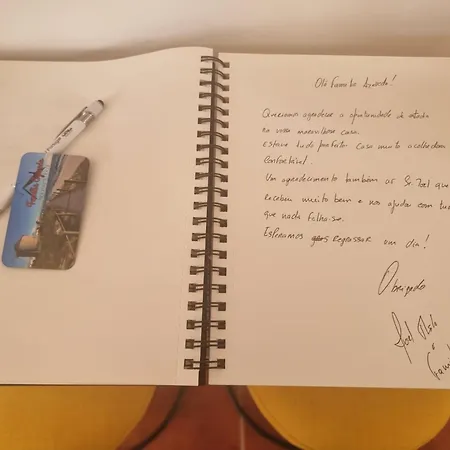 Olá Família Azevedo!
Queríamos agradecer a oportunidade de estada
na vossa maravilhosa casa.
Estava tudo perfeito. Casa muito acolhedora
Confortável.
Um agradecimento também ao Sr. Joel que
Recebeu muito bem e nos ajudou com tudo
que nada falhasse.
Esperamos REGRESSAR um dia!
Obrigado
Família